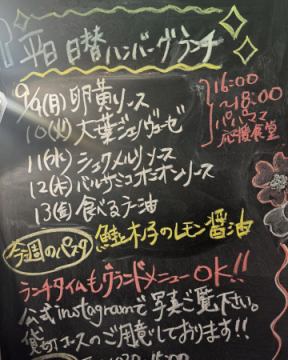 平日 日替ハンバーグランチ
9/9(月)卵黄ソース
10(火)大葉ジェノヴェーゼ
11(水)シュクメルリソース
12(木)バルサミコオニオンソース
13(金)食べるラー油
16:00
~18:00
パパママ
応援食堂
今週のパスタ 鮭ときのこのレモン醤油
ランチタイムもグランドメニューOK!!
公式instagramで写真ご覧下さい。
貸切コースのご用意しております!!